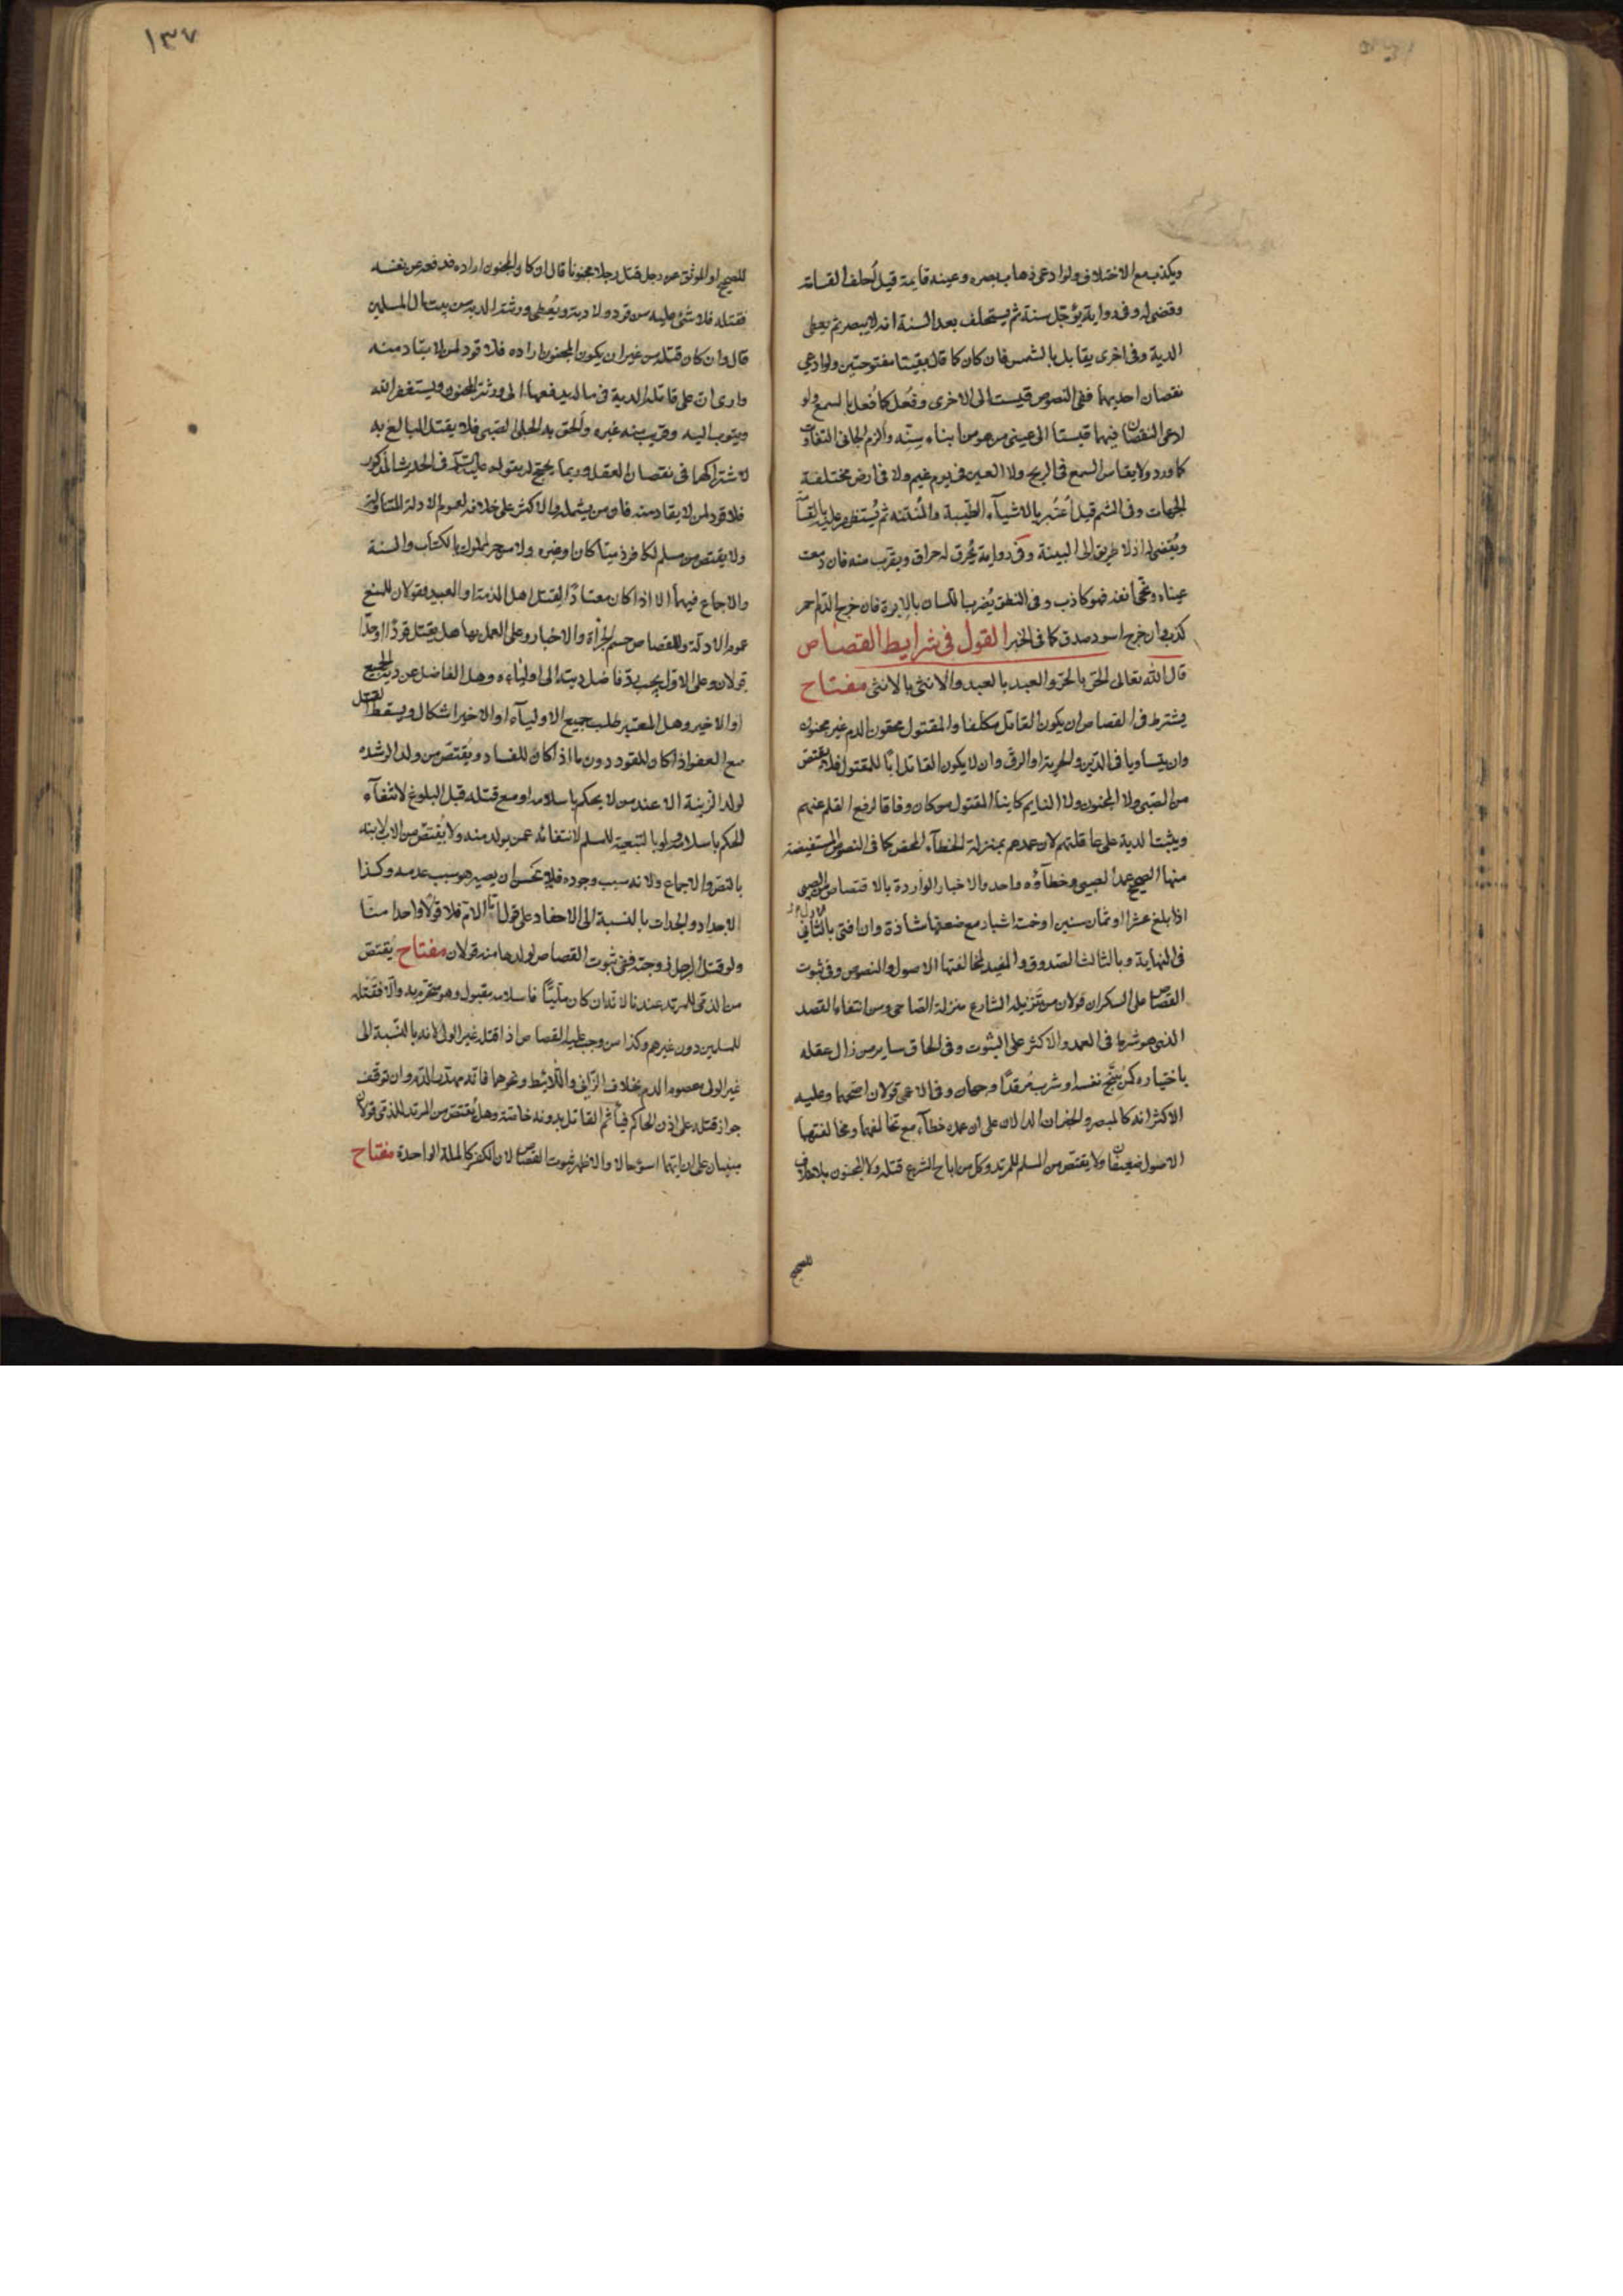 ويكذب مع الاختلاف ولو ادعى ذهاب بصره وعينه قايمة قيل اُحلف القسامة
وقضى له وفى رواية يؤجّل سنة ثم يستحلف بعد السنة انه لا يبصر ثم يعطى
الدية وفى اخرى يقابل بالشمس فان كان كما قال بقيتا مفتوحتين ولو ادعى
نقصان احديهما ففى النصوص قيست الى الاخرى وفُعل كما فُعل بالسمع ولو
ادعى النقصان فيهما قيستا الى عينى من هو من ابناء سِنّه واُلزم الجانى التفاوت
كما ورد ولا يقاس السمع فى الريح ولا العين فى يوم غيم ولا فى ارض مختلفة
الجهات وفى الشم قيل اُعتُبر بالاشيآء الطيّبة والمُنتنه ثم يُستظهر عليه بالقسامة
ويُقضى له اذ لا طريق الى البينة وفى رواية يُحرق له حراق ويقرب منه فان دمعت
عيناه ونحّى انفه فهو كاذب وفى النطق يُضرب اللسان بالابرة فان خرج الدّم احمر
كذب وان خرج اسود صدق كما فى الخبر القول فى شرايط القصاص
قال الله تعالى الحرّ بالحرّ والعبد بالعبد والانثى بالانثى مفتاح
يشترط فى القصاص ان يكون القاتل مكلفا والمقتول محقون الدم غير مجنون
وان يتساويا فى الدّين والحرية او الرقّ وان لا يكون القاتل ابًا للمقتول فلا يقتصّ
من الصّبى ولا المجنون ولا النايم كاينا المقتول من كان وفاقا لرفع القلم عنهم
ويثبت الدية على عاقلتهم لان عمدهم بمنزلة الخطآء المحض كما فى النصوص المستفيضة
منها الصحيح عمد الصبى وخطآؤه واحد والاخبار الواردة بالاقتصاص من الصبى
اذا بلغ عشرا او ثمان سنين او خمسة اشبار مع ضعفها شاذة وان افتى بالثانى
فى النهاية وبالثالث الصّدوق والمفيد لمخالفتها الاصول والنصوص وفى ثبوت
القصاص على السكران قولان من تنزيله الشارع منزلة الصّاحى ومن انتفاء القصد
الذى هو شرط فى العمد والاكثر على الثبوت وفى الحاق ساير من زال عقله
باختياره كمن بنّج نفسه او شرب مُرقدًا وجهان وفى الاعمى قولان اصحّهما وعليه
الاكثر انه كالمبصر والخبران الدالان على ان عمده خطآء مع تخالفهما ومخالفتهما
الاصول ضعيفان ولا يقتصّ من المسلم للمرتد وكل من اباح الشرع قتله ولا المجنون بلا خلاف
للصحيح
١٣٧
للصحيح او الموثق عن رجل قتل رجلا مجنونا قال ان كان المجنون اراده فدفعه عن نفسه
فقتله فلا شئ عليه من قود ولا دية ويُعطى ورثته الدية من بيت مال المسلمين
قال وان كان قتله من غير ان يكون المجنون اراده فلا قود لمن لا يقاد منه
وارى ان على قاتله الدية فى ماله يدفعها الى ورثة المجنون ويستغفر الله
ويتوب اليه وقريب منه غيره وألحق به الحلبى الصّبى فلا يقتل البالغ به
لاشتراكهما فى نقصان العقل وربما يحتج له بقوله عليه السلام فى الحديث المذكور
فلا قود لمن لا يقاد منه فان من يشمله والاكثر على خلافه لعموم الادلة المتناولة
ولا يقتص من مسلم لكافر ذميّا كان او غيره ولا من حر لمملوك بالكتاب والسنة
والاجماع فيهما الا اذا كان معتادًا لقتل اهل الذمة او العبيد فقولان للمنع
عموم الادلة وللقصاص حسم الجرأة والاخبار وعلى العمل بها هل يقتل قودًا او حدًّا
قولان وعلى الاول يجب ردّ فاضل ديته الى اوليائه وهل الفاضل عن دية الجميع
او الاخير وهل المعتبر طلب جميع الاوليآء او الاخير اشكال ويسقط القتل
مع العفو اذا كان للقود دون ما اذا كان للفساد ويُقتصّ من ولد الرشده
لولد الزنية الا عند من لا يحكم باسلامه او مع قتله قبل البلوغ لانتفآء
الحكم باسلامه ولو بالتبعية للمسلم لانتفائه عمن يولد منه ولا يُقتصّ من الاب لابنه
بالنصّ والاجماع ولانه سبب وجوده فلا يحسن ان يصير هو سبب عدمه وكذا
الاجداد والجدات بالنسبة الى الاحفاد على قول امّا الامّ فلا قولًا واحدا منّا
ولو قتل الرجل زوجته ففى ثبوت القصاص لولدها منه قولان مفتاح يُقتصّ
من الذمّى للمرتد عندنا لانه ان كان مليًّا فاسلامه مقبول وهو محترم به والّا فقتله
للمسلمين دون غيرهم وكذا من وجب عليه القصاص اذا قتله غير الولى لانه بالنّسبة الى
غير الولى معصوم الدم بخلاف الزّانى واللّائط ونحوهما فانه مهدّر الدم وان توقف
جواز قتله على اذن الحاكم فيأثم القاتل بدونه خاصّة وهل يُقتصّ من المرتد للذمّى قولان
مبنيان على ان ايّهما اسوء حالا والاظهر ثبوت القصاص لان الكفر كالملة الواحدة مفتاح